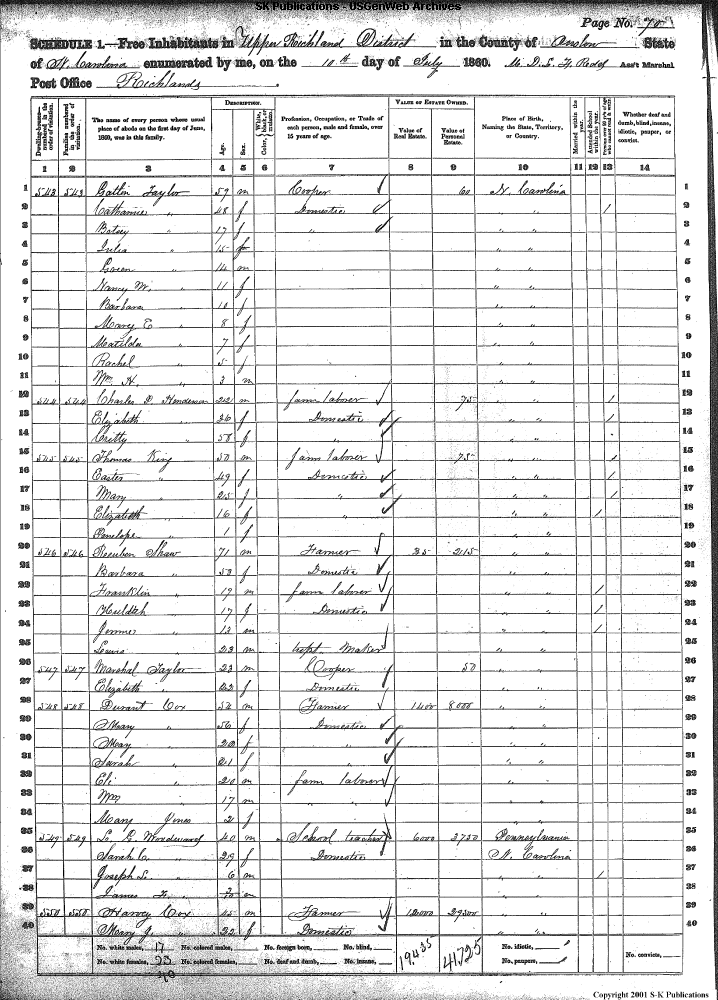 SK Publications - USGenWeb Archives
Page No. 70
SCHEDULE 1.—Free Inhabitants in Upper Richland District in the County of Onslow State
of N. Carolina enumerated by me, on the 10th day of July 1860. Ass't Marshal
Post Office Richlands
Dwelling-houses— numbered in the order of visitation.
Families numbered in the order of visitation.
The name of every person whose usual place of abode on the first day of June, 1860, was in this family.
DESCRIPTION.
Age.
Sex.
Color, White, black, or mulatto.
Profession, Occupation, or Trade of each person, male and female, over 15 years of age.
VALUE OF ESTATE OWNED.
Value of Real Estate.
Value of Personal Estate.
Place of Birth, Naming the State, Territory, or Country.
Married within the year.
Attended School within the year.
Persons over 20 y'rs of age who cannot read & write.
Whether deaf and dumb, blind, insane, idiotic, pauper, or convict.
1 2 3 4 5 6 7 8 9 10 11 12 13 14
1 543 543 Gatlin Taylor 59 m Cooper 60 N. Carolina 1
2 Catharine " 48 f Domestic " " / 2
3 Betsey " 17 f " " " 3
4 Julia " 15 f " " 4
5 " 14 m " " 5
6 Nancy W. " 11 f " " 6
7 Barbara " 10 f " " 7
8 Mary E " 8 f " " 8
9 Matilda " 7 f " " 9
10 Rachel " 5 f " " 10
11 Wm H. " 3 m " " 11
12 544 544 Charles D Henderson 22 m farm laborer 75 " " / 12
13 Elizabeth " 36 f Domestic " " / 13
14 Critty " 58 f " " " 14
15 545 545 Thomas King 50 m farm laborer 75 " " / 15
16 Easter " 49 f Domestic " " / 16
17 Mary " 25 f " " " / 17
18 Elizabeth " 16 f " " " / 18
19 Penelope " 1 f " " 19
20 546 546 Reuben Shaw 71 m Farmer 35 2115 " " 20
21 Barbara " 53 f Domestic " " 21
22 Franklin " 19 m farm laborer " " / 22
23 " 17 f Domestic " " / 23
24 " 13 m " " / 24
25 Lewis " 23 m Maker " " 25
26 547 547 Marshal Taylor 23 m Cooper 50 " " 26
27 Elizabeth " 22 f Domestic " " 27
28 548 548 Durant Cox 54 m Farmer 1400 8000 " " 28
29 Mary " 56 f Domestic " " 29
30 Mary " f " " " 30
31 Sarah " 21 f " " " 31
32 Eli " 20 m farm laborer " " 32
33 Wm " 17 m " " " " 33
34 Mary Jones 2 f " " 34
35 549 549 Woodward 40 m School teacher 6000 3750 Pennsylvania 35
36 Sarah C. " 29 f Domestic N. Carolina 36
37 Joseph S. " 6 m " " / 37
38 James F. " m " " 38
39 550 550 Harvey Cox 45 m Farmer 12000 " " 39
40 Mary J. " 22 f Domestic " " 40
No. white males, 17 No. colored males, No. foreign born, No. blind, 19,435 41,725 No. idiotic, No. convicts,
No. white females, 23 No. colored females, No. deaf and dumb, No. insane, No. paupers,
40
Copyright 2001 S-K Publications